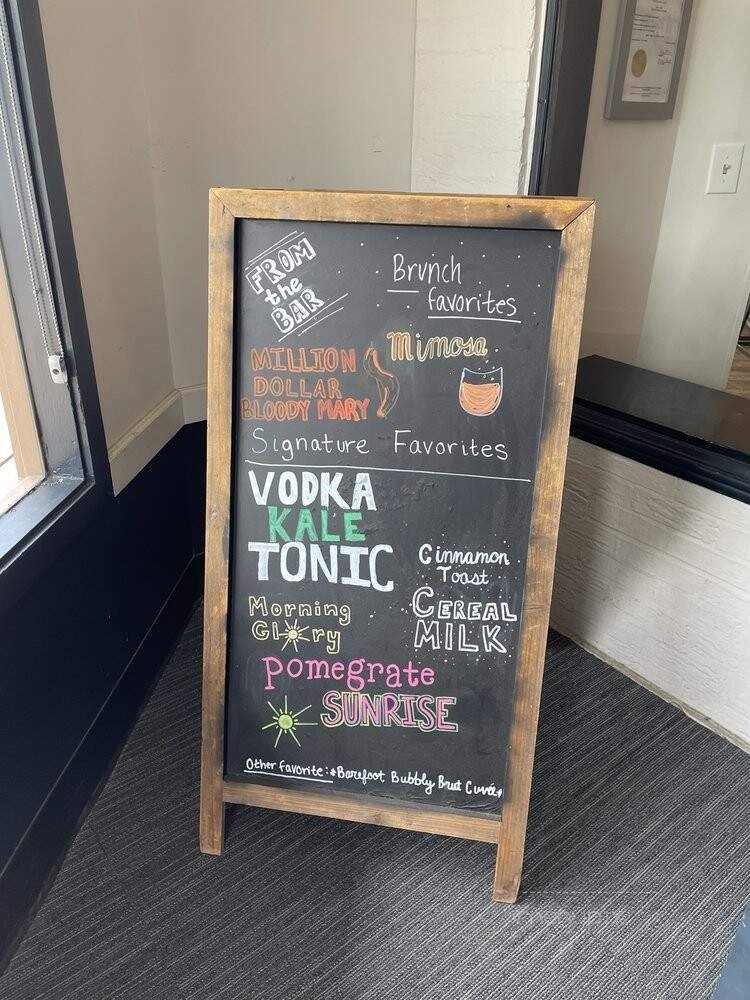 FROM
the
BAR
Brunch
favorites
MILLION
DOLLAR
BLOODY MARY
Mimosa
Signature Favorites
VODKA
KALE
TONIC
Cinnamon
Toast
CEREAL
MILK
Morning
Glory
Pomegrate
SUNRISE
Other favorite: *Barefoot Bubbly Brut Cuvée*